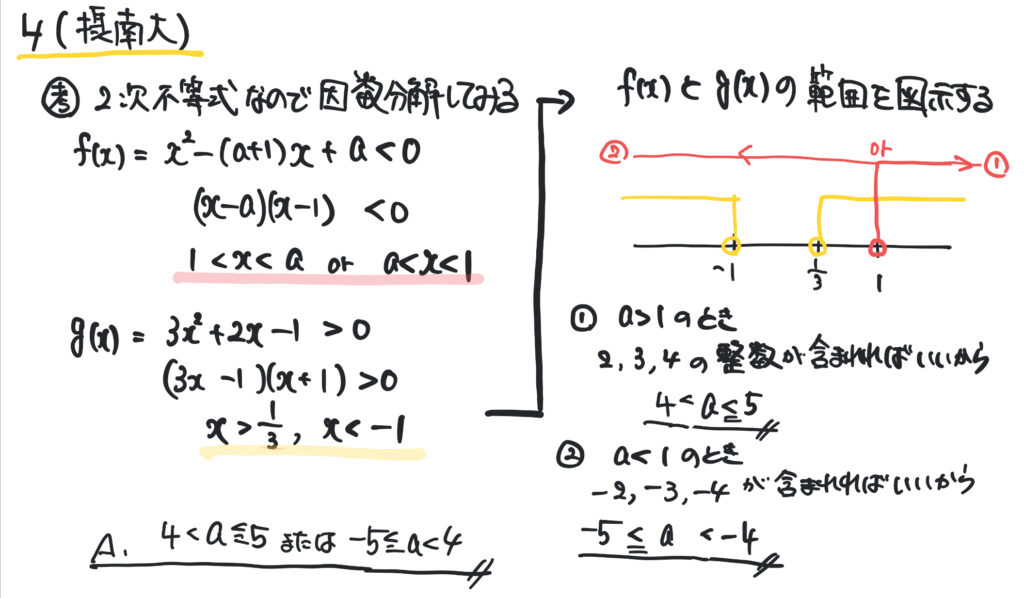 4(摂南大)
考 2次不等式なので因数分解してみる
f(x) = x² - (a+1)x + a < 0
(x-a)(x-1) < 0
1 < x < a or a < x < 1
g(x) = 3x² + 2x - 1 > 0
(3x - 1)(x + 1) > 0
x > 1/3 , x < -1
A. 4 < a ≦ 5 または -5 ≦ a < 4
f(x) と g(x) の範囲を図示する
② or ①
-1 1/3 1
① a > 1 のとき
2, 3, 4 の整数が含まれればいいから
4 < a ≦ 5
② a < 1 のとき
-2, -3, -4 が含まれればいいから
-5 ≦ a < -4